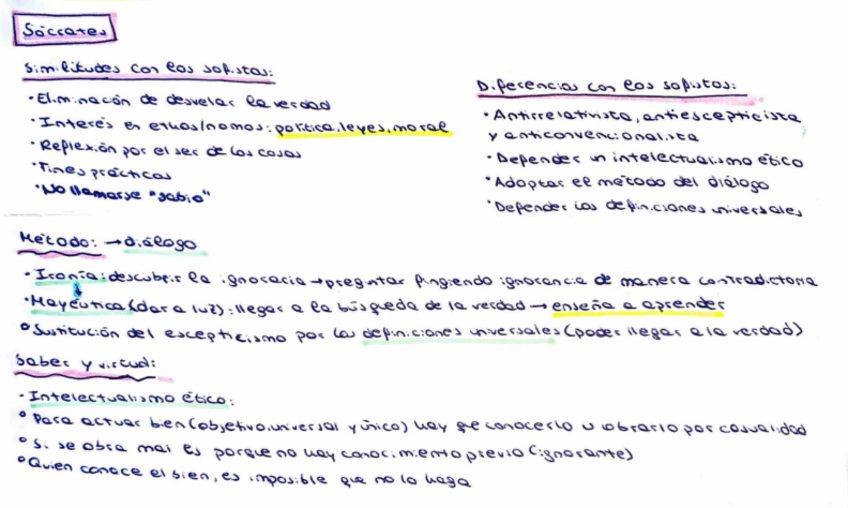 Sócrates
Similitudes con los sofistas:
· Eliminación de desvelar la verdad
· Interés en ethos/nomos: política, leyes, moral
· Reflexión por el ser de las cosas
· Fines prácticos
· No llamarse "sabio"
Diferencias con los sofistas:
· Antirrelativista, antiescepticista
y anticonvencionalista
· Defender un intelectualismo ético
· Adoptar el método del diálogo
· Defender las definiciones universales
Método: → diálogo
· Ironía: descubrir la ignoracia → preguntar fingiendo ignorancia de manera contradictoria
↓
· Mayéutica (dar a luz): llegar a la búsqueda de la verdad → enseña a aprender
° Sustitución del escepticismo por las definiciones universales (poder llegar a la verdad)
Saber y virtud:
· Intelectualismo ético:
° Para actuar bien (objetivo, universal y único) hay que conocerlo u obrarlo por casualidad
° Si se obra mal es porque no hay conocimiento previo (ignorante)
° Quien conoce el bien, es imposible que no lo haga